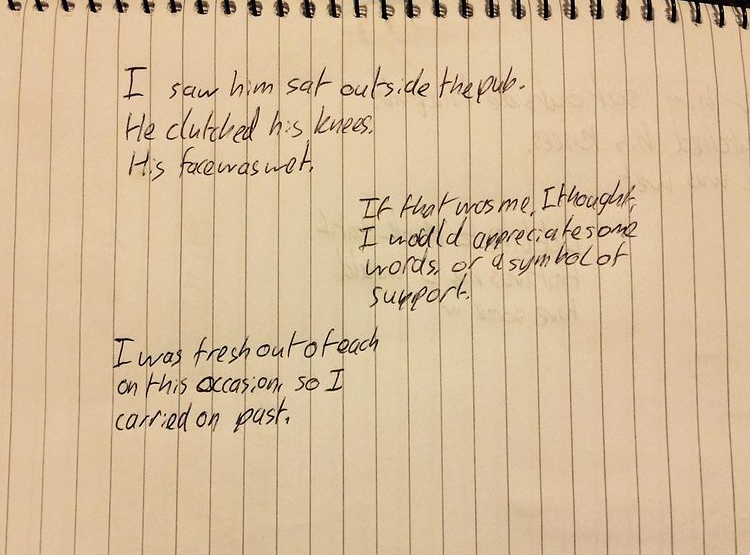 I saw him sat outside the pub.
He clutched his knees.
His face was wet.
If that was me, I thought,
I would appreciate some
words, or a symbol of
support.
I was fresh out of each
on this occasion, so I
carried on past.